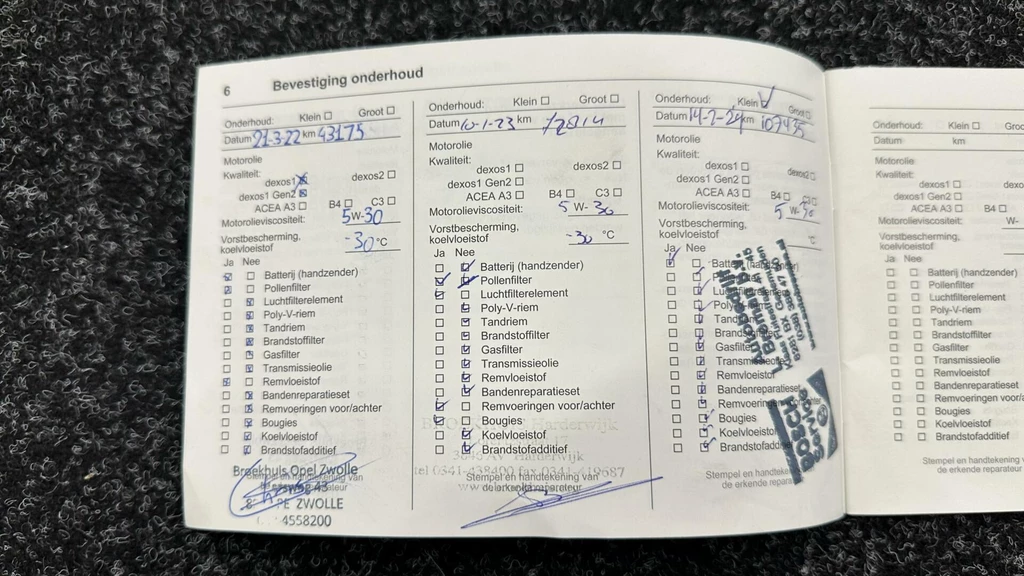 6 Bevestiging onderhoud
Onderhoud: Klein Groot
Datum 21-3-22 km 43175
Motorolie
Kwaliteit:
dexos1 dexos2
dexos1 Gen2
ACEA A3 B4 C3
Motorolieviscositeit: 5W-30
Vorstbescherming,
koelvloeistof -30 °C
Ja Nee
Batterij (handzender)
Pollenfilter
Luchtfilterelement
Poly-V-riem
Tandriem
Brandstoffilter
Gasfilter
Transmissieolie
Remvloeistof
Bandenreparatieset
Remvoeringen voor/achter
Bougies
Koelvloeistof
Brandstofadditief
Broekhuis Opel Zwolle
ZWOLLE
4558200
Onderhoud: Klein Groot
Datum 10-1-23 km
Motorolie
Kwaliteit:
dexos1 dexos2
dexos1 Gen2
ACEA A3 B4 C3
Motorolieviscositeit: 5 W-30
Vorstbescherming,
koelvloeistof -30 °C
Ja Nee
Batterij (handzender)
Pollenfilter
Luchtfilterelement
Poly-V-riem
Tandriem
Brandstoffilter
Gasfilter
Transmissieolie
Remvloeistof
Bandenreparatieset
Remvoeringen voor/achter
Bougies
Koelvloeistof
Brandstofadditief
Harderwijk
tel 0341-438400 fax 0341-419687
Stempel en handtekening van
de erkende reparateur
Onderhoud: Klein Groot
Datum 14-2-24 km 107435
Motorolie
Kwaliteit:
dexos1 dexos2
dexos1 Gen2
ACEA A3 B4 C3
Motorolieviscositeit: 5 W-30
Vorstbescherming,
koelvloeistof °C
Ja Nee
Batterij (handzender)
Pollenfilter
Luchtfilterelement
Poly-V-riem
Tandriem
Brandstoffilter
Gasfilter
Transmissieolie
Remvloeistof
Bandenreparatieset
Remvoeringen voor/achter
Bougies
Koelvloeistof
Brandstofadditief
Autobedrijf
BOSCH
Stempel en handteken
de erkende repara
Onderhoud: Klein Groo
Datum km
Motorolie
Kwaliteit:
dexos1
dexos1 Gen2
ACEA A3 B4
Motorolieviscositeit: W-
Vorstbescherming,
koelvloeistof
Ja Nee
Batterij (handzender)
Pollenfilter
Luchtfilterelement
Poly-V-riem
Tandriem
Brandstoffilter
Gasfilter
Transmissieolie
Remvloeistof
Bandenreparatieset
Remvoeringen voor/a
Bougies
Koelvloeistof
Brandstofadditief
Stempel en handtekening v
de erkende reparateur